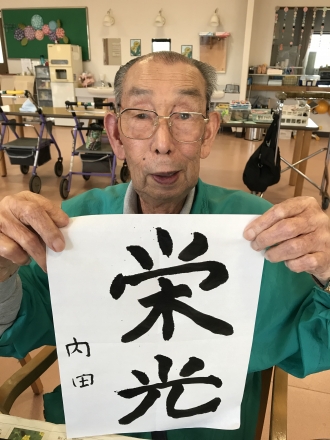 栄光
内田